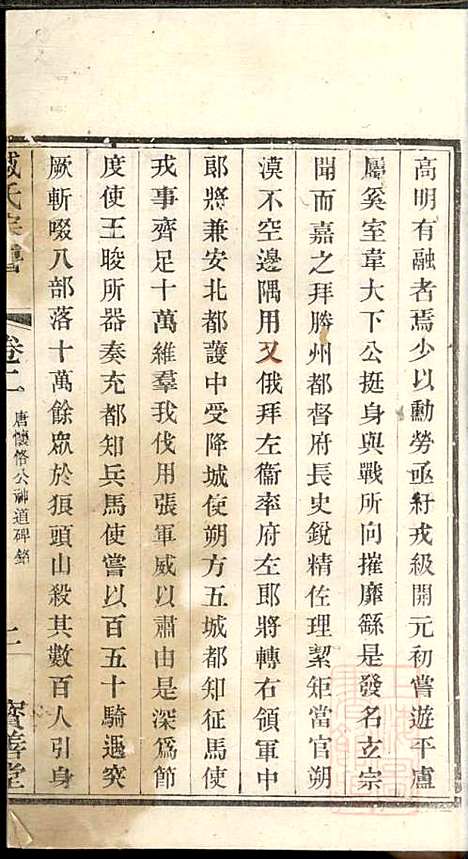 高明有融者焉少以勳勞亟紆戎級開元初嘗遊平盧
屬奚室韋大下公挺身與戰所向摧靡繇是發名玄宗
聞而嘉之拜勝州都督府長史銳精佐理絜矩當官朔
漠不空邊隅用乂俄拜左衞率府左郎將轉右領軍中
郎將兼安北都護中受降城使朔方五城都知征馬使
戎事齊足十萬維羣我伐用張軍威以肅由是深爲節
度使王晙所器奏充都知兵馬使嘗以百五十騎遇突
厥斬啜八部落十萬餘眾於狼頭山殺其數百人引身
臧氏宗譜
卷二
唐懷恪公神道碑銘
二
寶善堂